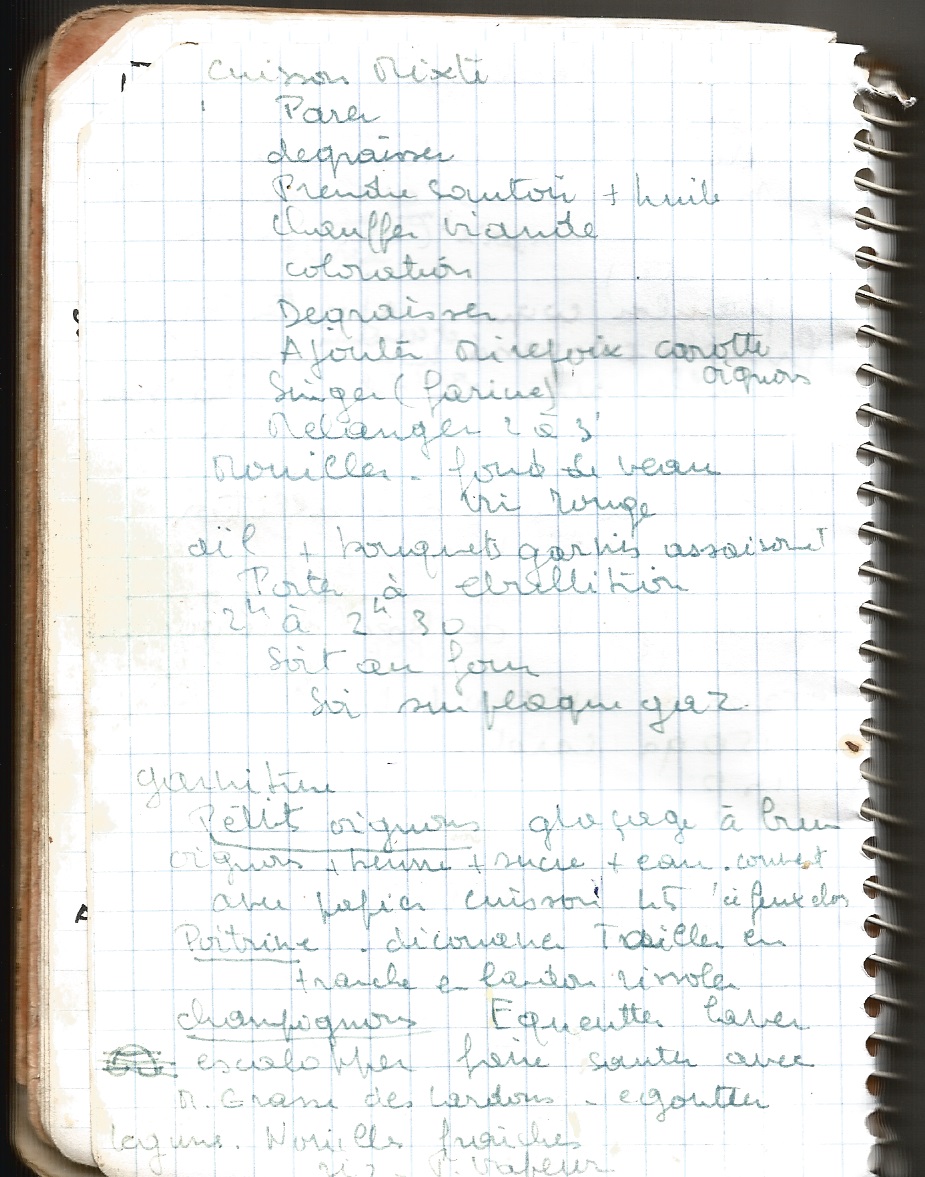 Cuisson Mixte
Parer
degraisser
Prendre sautoir + huile
Chauffer viande
coloration
Degraisser
Ajouter Mirepoix carotte
oignons
Singer (farine)
Melanger 2 à 3'
Mouiller. fond de veau
vin rouge
aïl + bouquets garnis assaisonnt
Porter à ebullition
2h à 2h 30
Soit au four
Soi sur plaque gaz
garniture
Petits oignons glaçage à brun
oignons + beurre + sucre + eau. couvert
avec papier cuisson
Poitrine. découenner Tailler en
tranche en lardon rissoler
champignons Equeutter laver
escalopper faire sauter avec
M. Grasse des lardons - egoutter
legume. Nouilles fraîches
riz - P. Vapeur